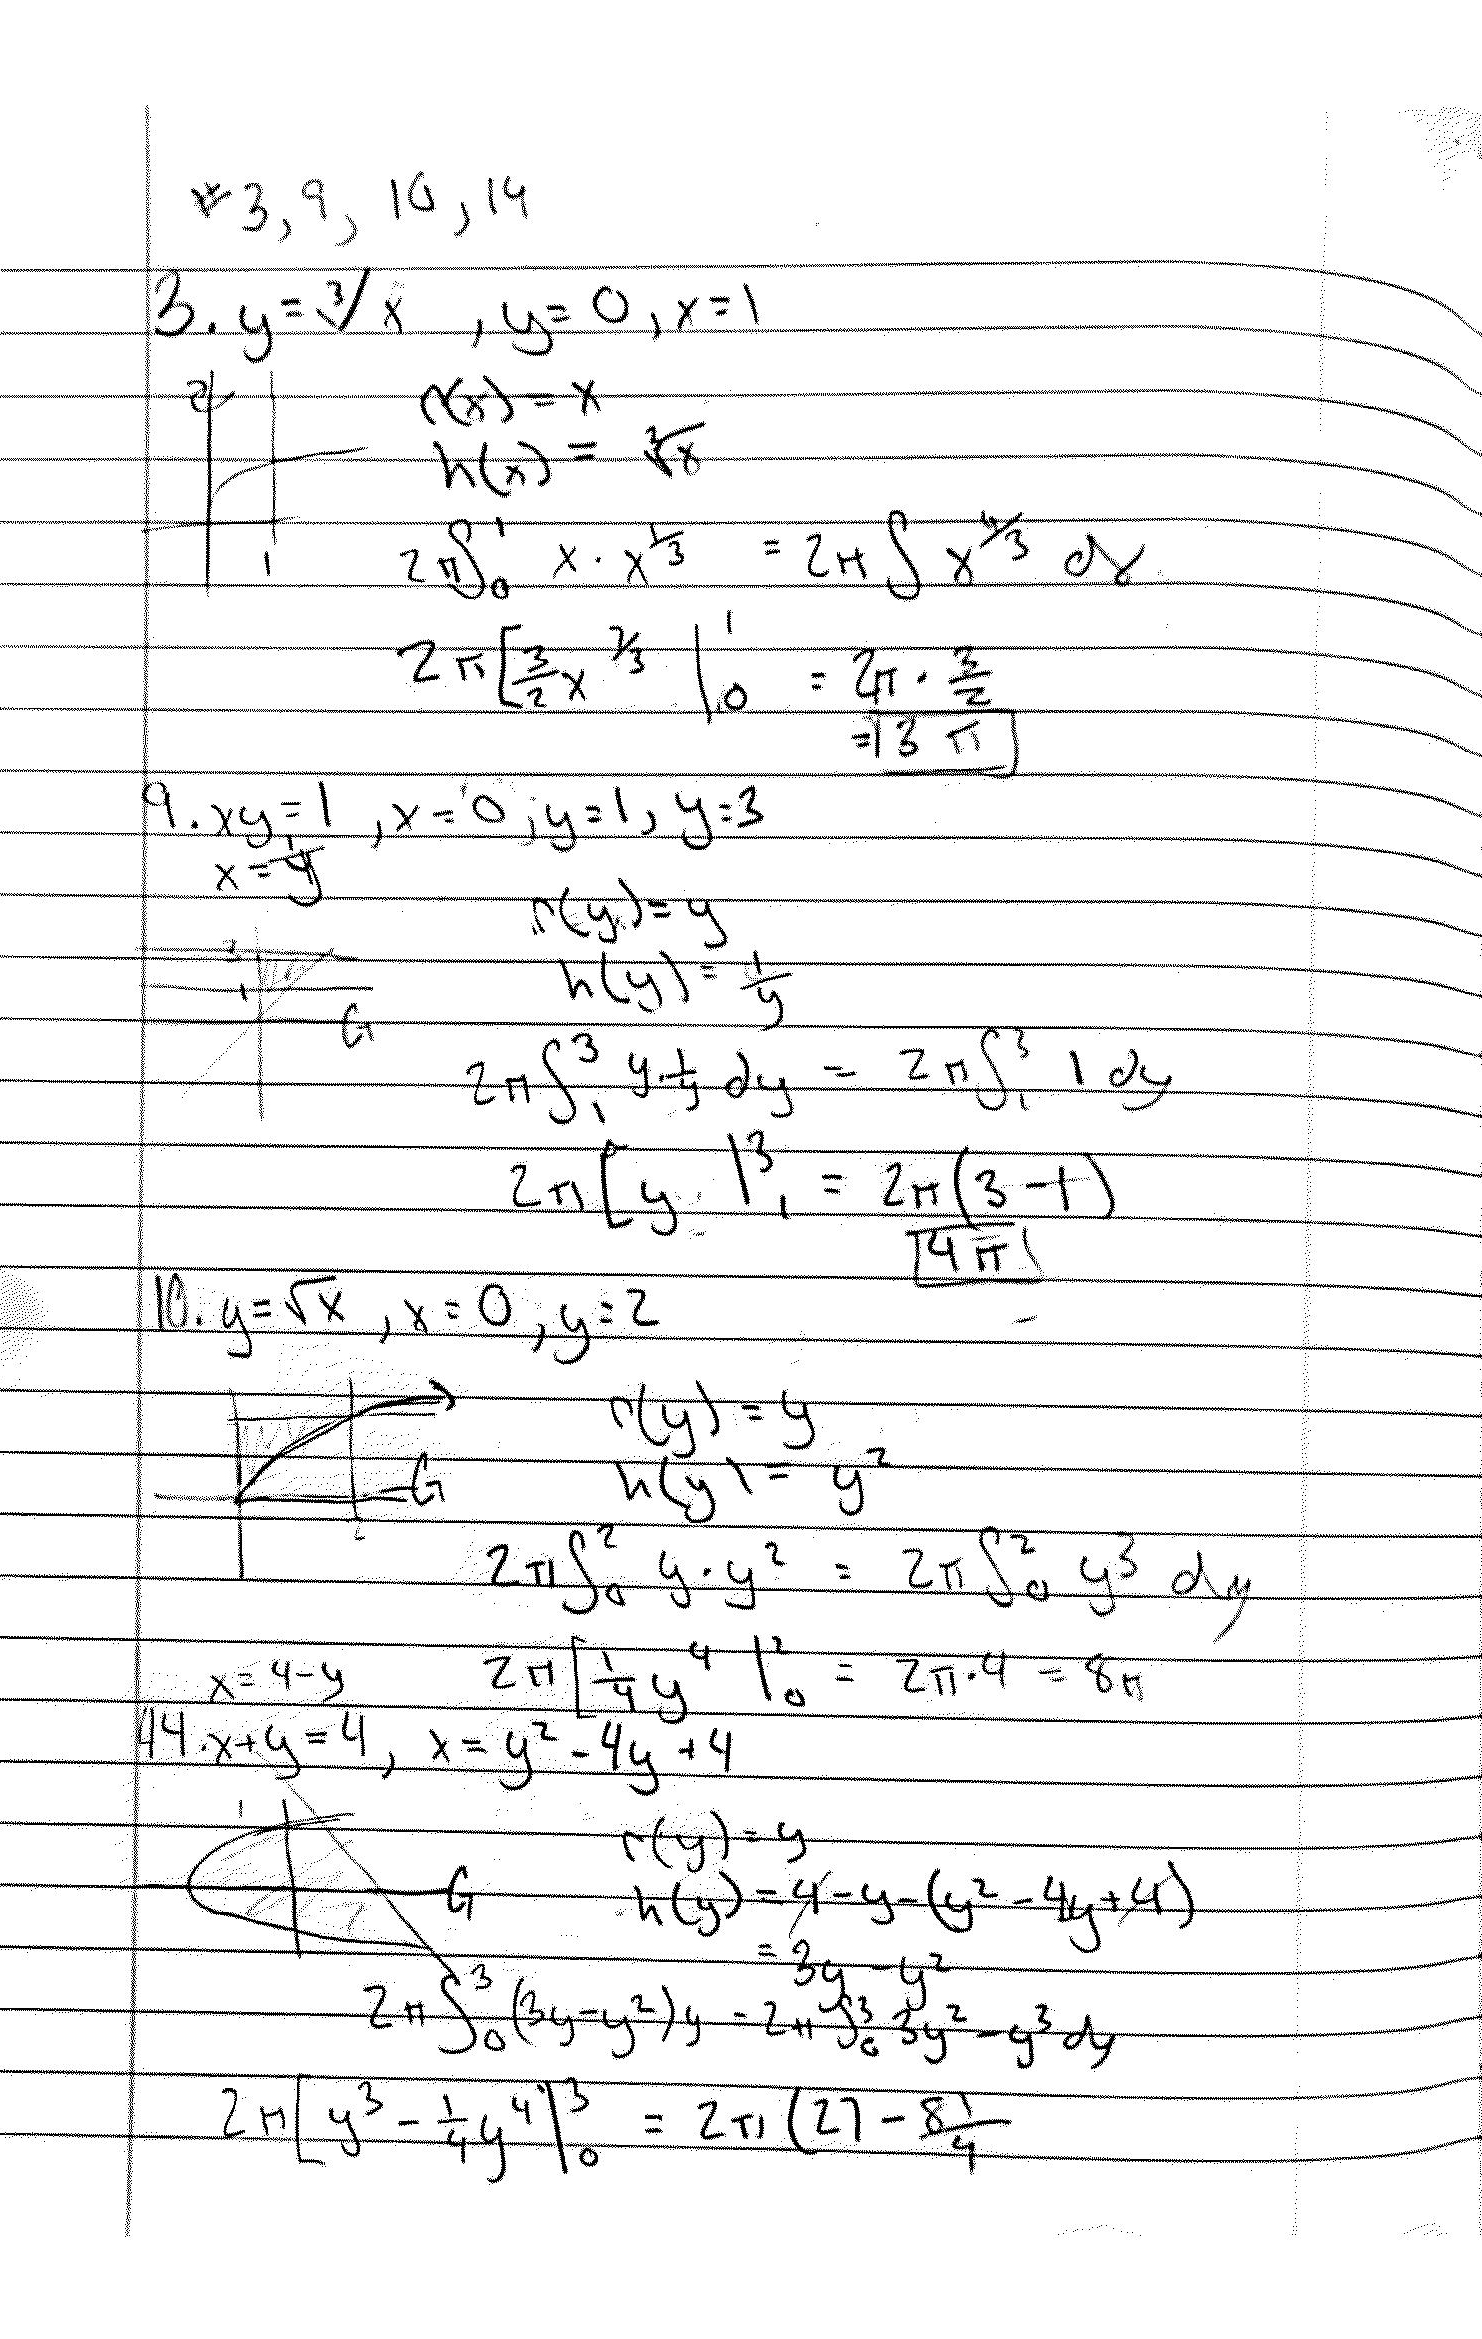 #3, 9, 10, 14
3. y = ∛x , y = 0, x = 1
2
r(x) = x
h(x) = ∛x
1
2π∫₀¹ x · x^(1/3) = 2π∫ x^(4/3) dx
2π[3/2 x^(7/3) |₀¹ = 2π · 3/2
= 3π
9. xy = 1 , x = 0, y = 1, y = 3
x = 1/y
r(y) = y
3
1
h(y) = 1/y
2π∫₁³ y · 1/y dy = 2π∫₁³ 1 dy
2π[y |₁³ = 2π(3 - 1)
4π
10. y = √x , x = 0, y = 2
r(y) = y
h(y) = y²
2π∫₀² y · y² = 2π∫₀² y³ dy
2π[1/4 y⁴ |₀² = 2π · 4 = 8π
x = 4 - y
14. x + y = 4, x = y² - 4y + 4
r(y) = y
h(y) = 4 - y - (y² - 4y + 4)
= 3y - y²
2π∫₀³ (3y - y²)y = 2π∫₀³ 3y² - y³ dy
2π[y³ - 1/4 y⁴]|₀³ = 2π(27 - 81/4